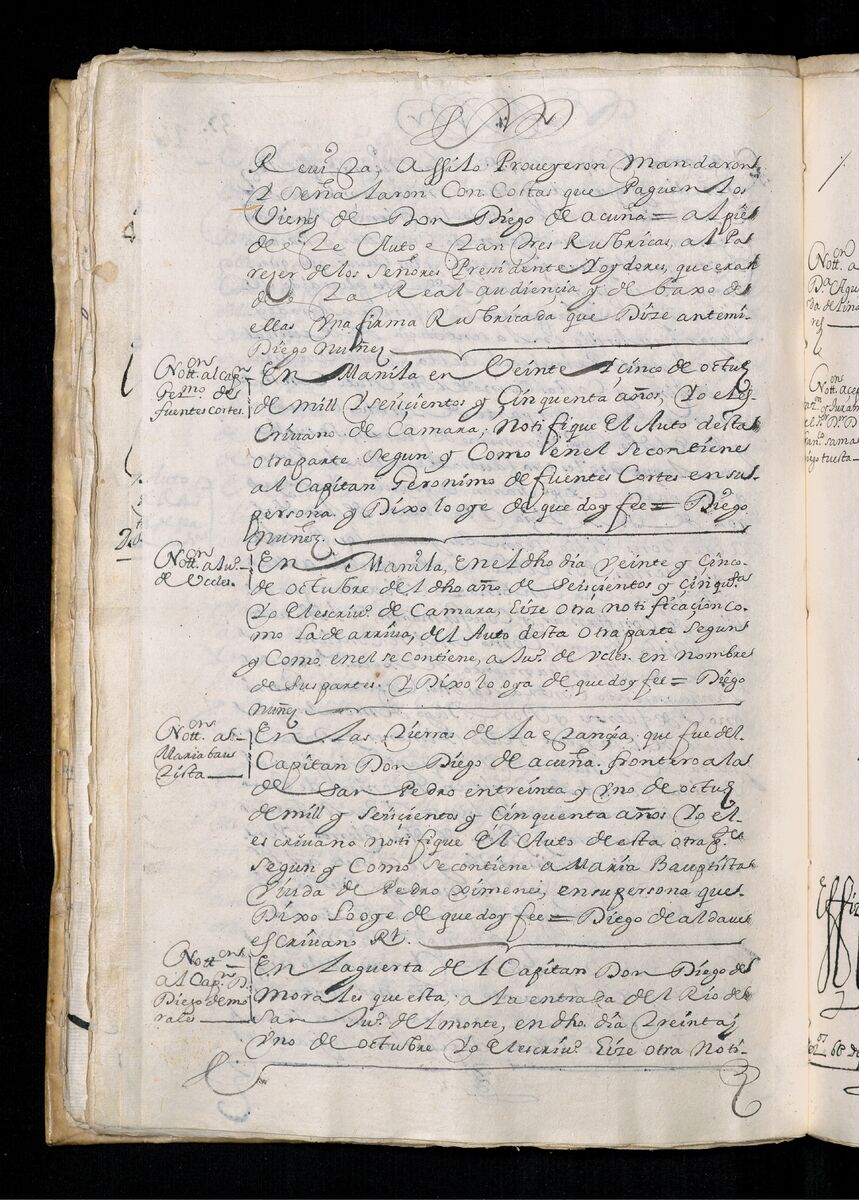 Reuista, Assilo Proueyeron Mandaron
Y Señalaron Con Costas que Paguen los
Vienes de Don Diego de acuña = al pie
de este Auto estan tres Rubricas, al Pa
reser de los Señores Pressidente Y oydores, que eran
de la Real audiencia y de baxo de
ellas Vna firma Rubricada que Dize antemi-
Diego nuñez
Nott.ons al cap.n
Ger.mo de
fuentes Cortes.
En Manila en Veinte Y çinco de octu.e
de mill Y seiscientos y Çinquenta años, Yo el es
Criuano de Camara, Notifique El Auto desta
otra parte Segun y Como en el Se contiene
al Capitan Geronimo de fuentes Cortes en su
persona y Dixo lo oye de que doy fee = Diego
nuñez.
Nott.ons a Ju.o
de Vcles.
En Manila, en el dho dia Veinte y Çinco
de octubre del dho año de Seiscientos y çinqu.ta
Yo El escriu.o de Camara, Hize otra notificaçion co-
mo la de arriua, del Auto desta otra parte Segun
y Como en el se contiene, a Ju.o de Vcles en nombre
de sus partes. Y Dixo lo oya de que doy fee = Diego
nuñez
Nott.ons a
Maria baus
tista
En las tierras de la estançia que fue del
Capitan Don Diego de acuña frontero a la
de San Pedro en treinta y Vno de octu.e
de mill y Seiscientos y Cinquenta años Yo el
escriuano notifique El Auto de esta otra p.te
Segun y Como Se contiene a Maria Bauptista
Viuda de Pedro Ximenes, en su persona que
Dixo Lo oye de que doy fee = Diego de aldaue
escriuano R.l
Nott.ons
al Cap.n D.
Diego de mo
rales
En la guerta del Capitan Don Diego de
Morales que esta, a la entrada del Rio de
San Ju.o del monte, en dho dia treinta y
Vno de octubre Yo El escriu.o Hize otra Noti-